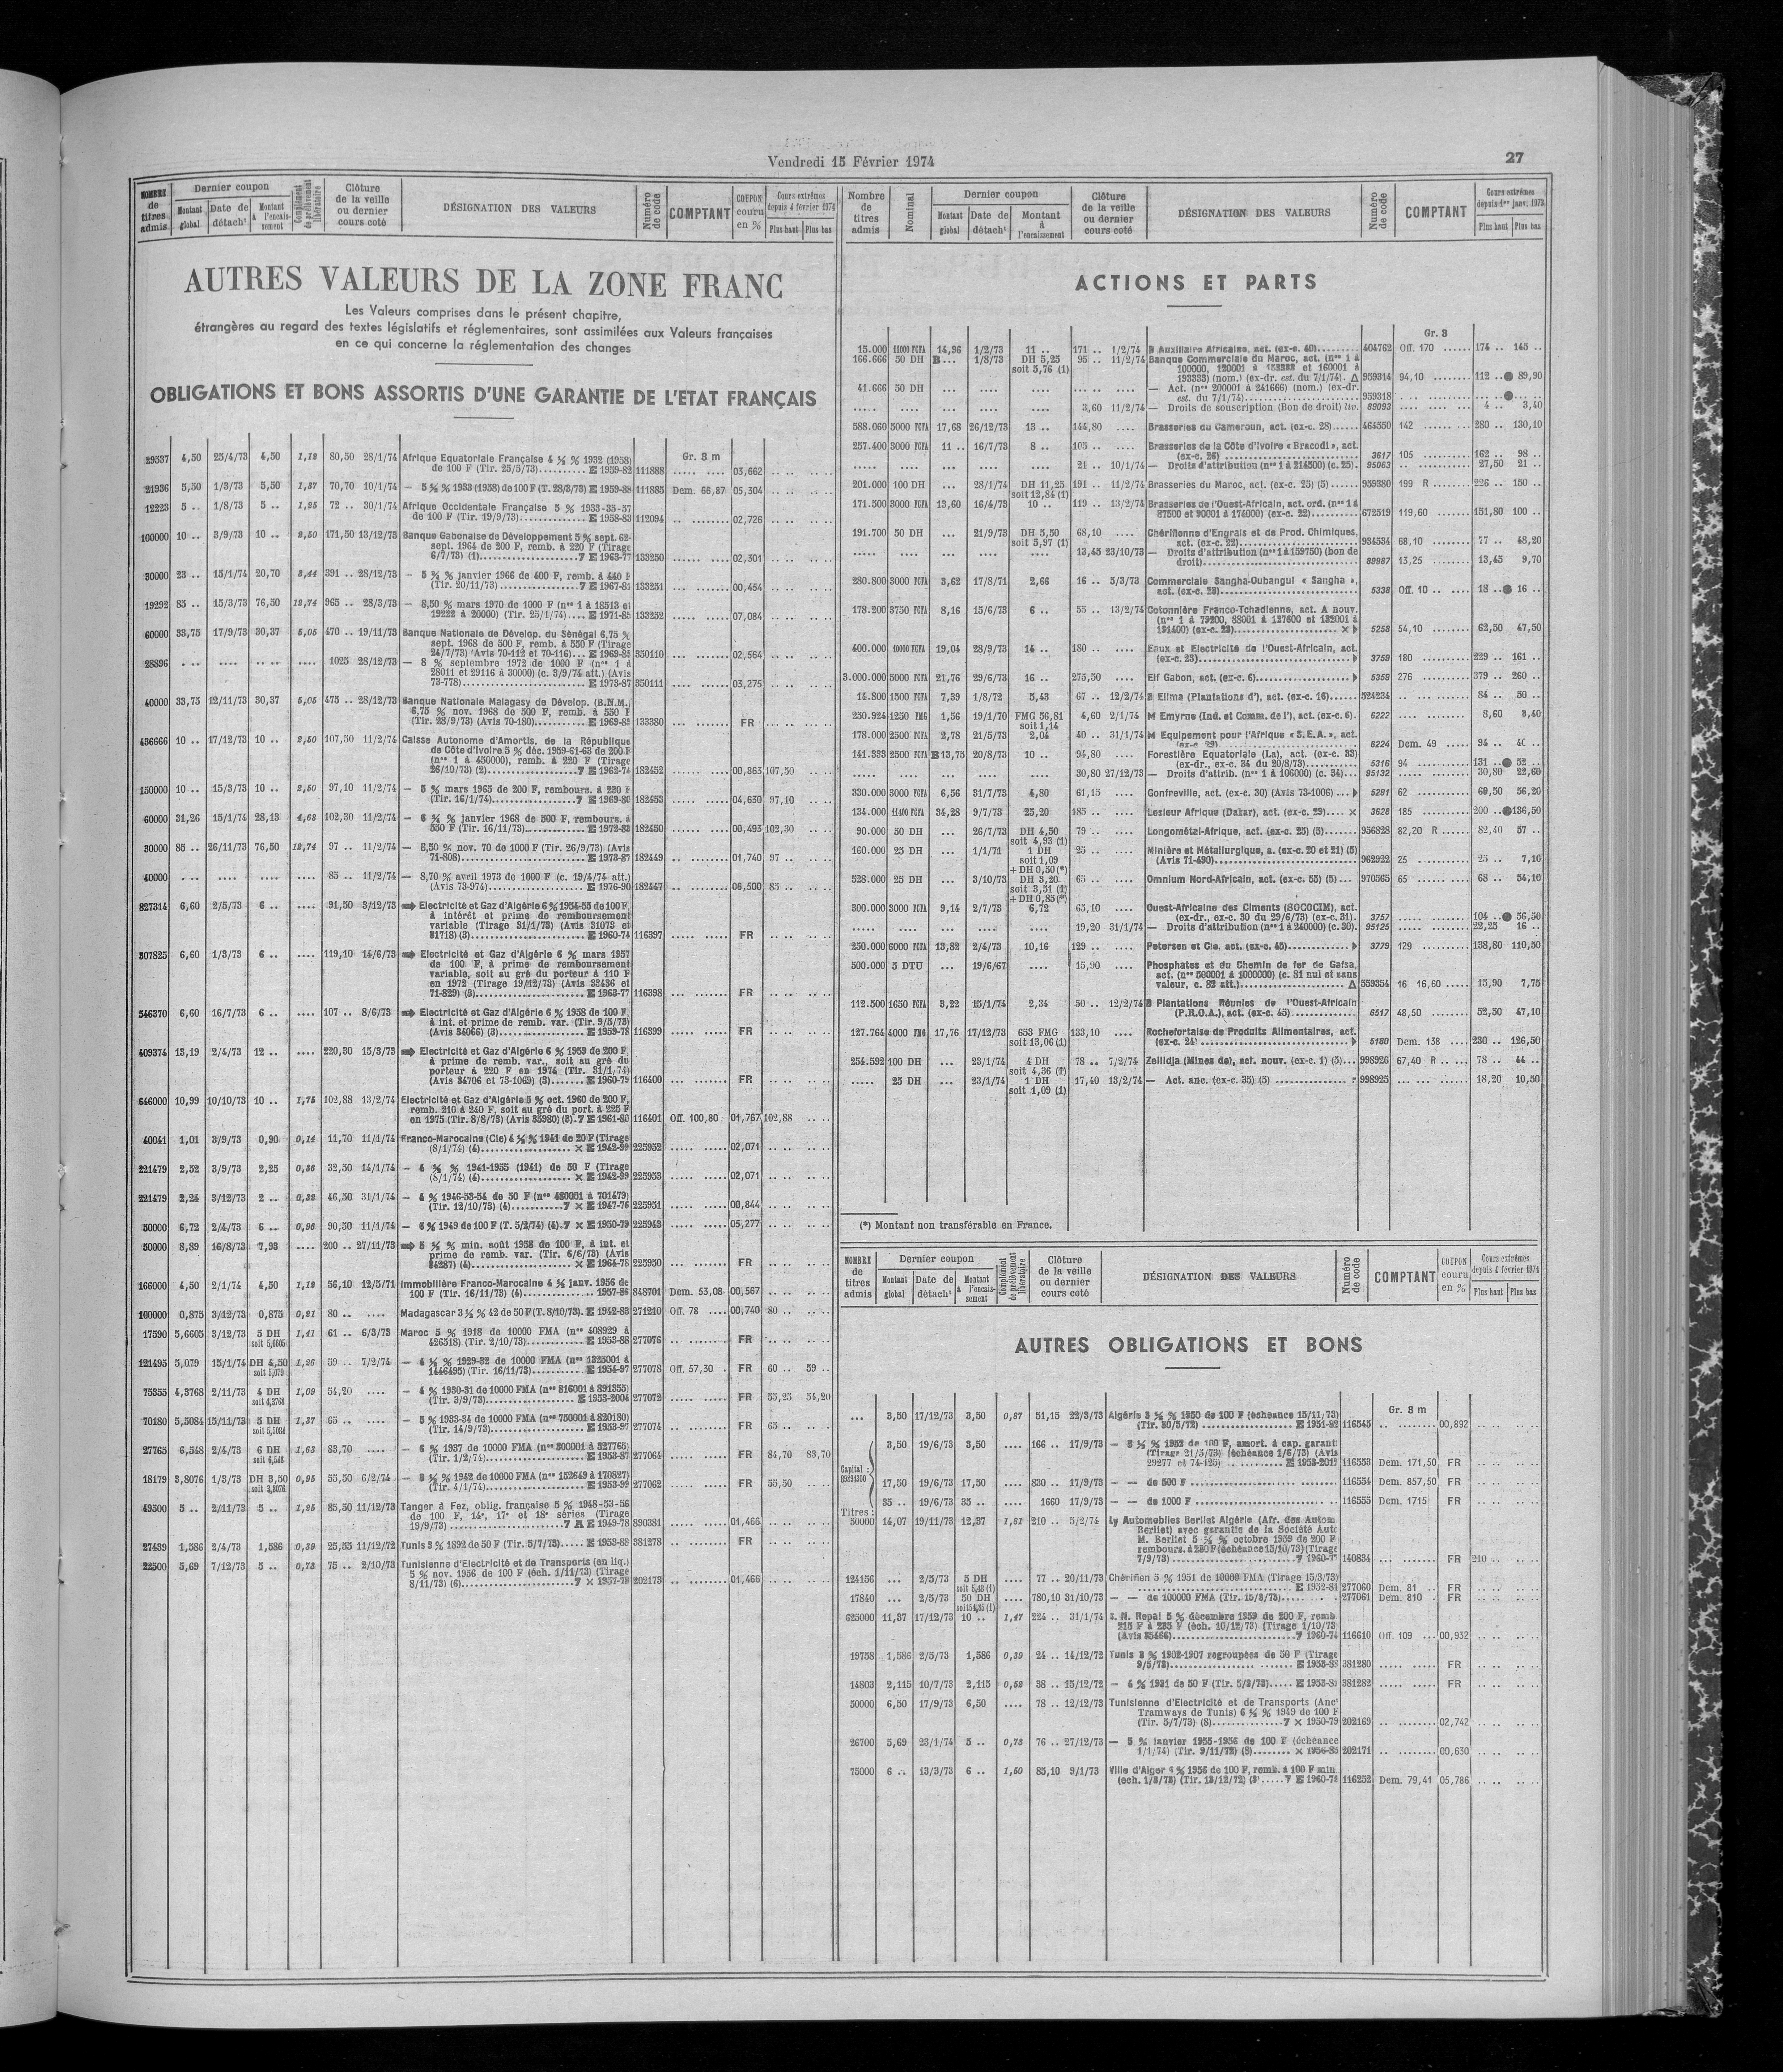 Vendredi 15 Février 1974
27
NOMBRE de titres admis
Dernier coupon
Montant global
Date de détach<sup>t</sup>
Montant à l'encaissement
Complément de prélèvement libératoire
Clôture de la veille ou dernier cours coté
DÉSIGNATION DES VALEURS
Numéro de code
COMPTANT
COUPON couru en %
Cours extrêmes depuis 4 février 1974
Plus haut
Plus bas
AUTRES VALEURS DE LA ZONE FRANC
Les Valeurs comprises dans le présent chapitre,
étrangères au regard des textes législatifs et réglementaires, sont assimilées aux Valeurs françaises
en ce qui concerne la réglementation des changes
OBLIGATIONS ET BONS ASSORTIS D'UNE GARANTIE DE L'ETAT FRANÇAIS
Gr. 8 m
29537 4,50 25/4/73 4,50 1,12 80,50 28/1/74 Afrique Equatoriale Française 4 ½ % 1932 (1958)
de 100 F (Tir. 25/5/73) E 1959-82 111888 03,662
21936 5,50 1/3/73 5,50 1,37 70,70 10/1/74 — 5 ½ % 1933 (1958) de 100 F (T. 28/3/73) E 1959-88 111885 Dem. 66,87 05,304
12223 5 .. 1/8/73 5 .. 1,25 72 .. 30/1/74 Afrique Occidentale Française 5 % 1933-35-57
de 100 F (Tir. 19/9/73) E 1958-83 112094 02,726
100000 10 .. 3/9/73 10 .. 2,50 171,50 13/12/73 Banque Gabonaise de Développement 5 % sept. 62-
sept. 1964 de 200 F, remb. à 220 F (Tirage
6/7/73) (1) 7 E 1963-77 133250 02,301
30000 23 .. 15/1/74 20,70 3,44 391 .. 28/12/73 — 5 ¾ % janvier 1966 de 400 F, remb. à 440 F
(Tir. 20/11/73) 7 E 1967-81 133251 00,454
19292 85 .. 15/3/73 76,50 12,74 965 .. 28/3/73 — 8,50 % mars 1970 de 1000 F (nos 1 à 18513 et
19222 à 20000) (Tir. 25/1/74) E 1971-85 133252 07,084
60000 33,75 17/9/73 30,37 5,05 470 .. 19/11/73 Banque Nationale de Dévelop. du Sénégal 6,75 %
sept. 1968 de 500 F, remb. à 550 F (Tirage
24/7/73) (Avis 70-112 et 70-116) E 1969-83 350110 02,564
28896 1025 28/12/73 — 8 % septembre 1972 de 1000 F (nos 1 à
28011 et 29116 à 30000) (c. 3/9/74 att.) (Avis
73-778) E 1973-87 350111 03,275
40000 33,75 12/11/73 30,37 5,05 475 .. 28/12/73 Banque Nationale Malagasy de Dévelop. (B.N.M.)
6,75 % nov. 1968 de 500 F, remb. à 550 F
(Tir. 28/9/73) (Avis 70-180) E 1969-83 133380 FR
436666 10 .. 17/12/73 10 .. 2,50 107,50 11/2/74 Caisse Autonome d'Amortis. de la République
de Côte d'Ivoire 5 % déc. 1959-61-63 de 200 F
(nos 1 à 450000), remb. à 220 F (Tirage
26/10/73) (2) 7 E 1962-74 182452 00,863 107,50
150000 10 .. 15/3/73 10 .. 2,50 97,10 11/2/74 — 5 % mars 1965 de 200 F, rembours. à 230 F
(Tir. 16/1/74) 7 E 1969-80 182453 04,630 97,10
60000 31,26 15/1/74 28,13 4,68 102,30 11/2/74 — 6 ¼ % janvier 1968 de 500 F, rembours. à
550 F (Tir. 16/11/73) E 1972-83 182450 00,493 102,30
30000 85 .. 26/11/73 76,50 12,74 97 .. 11/2/74 — 8,50 % nov. 70 de 1000 F (Tir. 26/9/73) (Avis
71-808) E 1973-87 182449 01,740 97 ..
40000 85 .. 11/2/74 — 8,70 % avril 1973 de 1000 F (c. 19/4/74 att.)
(Avis 73-974) E 1976-90 182447 06,500 85 ..
827314 6,60 2/5/73 6 .. 91,50 3/12/73 Electricité et Gaz d'Algérie 6 % 1954-55 de 100 F,
à intérêt et prime de remboursement
variable (Tirage 31/1/73) (Avis 31073 et
31718) (3) E 1960-74 116397 FR
307825 6,60 1/3/73 6 .. 119,10 14/6/73 Electricité et Gaz d'Algérie 6 % mars 1957
de 100 F, à prime de remboursement
variable, soit au gré du porteur à 110 F
en 1972 (Tirage 19/12/73) (Avis 32436 et
71-829) (3) E 1963-77 116398 FR
546370 6,60 16/7/73 6 .. 107 .. 8/6/73 Electricité et Gaz d'Algérie 6 % 1958 de 100 F,
à int. et prime de remb. var. (Tir. 9/5/73)
(Avis 34066) (3) E 1959-78 116399 FR
409374 13,19 2/4/73 12 .. 220,30 15/3/73 Electricité et Gaz d'Algérie 6 % 1959 de 200 F,
à prime de remb. var., soit au gré du
porteur à 220 F en 1974 (Tir. 31/1/74)
(Avis 34706 et 73-1069) (3) E 1960-79 116400 FR
646000 10,99 10/10/73 10 .. 1,75 102,88 13/2/74 Electricité et Gaz d'Algérie 5 % oct. 1960 de 200 F,
remb. 210 à 240 F, soit au gré du port. à 225 F
en 1975 (Tir. 8/8/73) (Avis 35980) (3). 7 E 1961-80 116401 Off. 100,80 01,767 102,88
40041 1,01 3/9/73 0,90 0,14 11,70 11/1/74 Franco-Marocaine (Cie) 4 ½ % 1941 de 20 F (Tirage
(8/1/74) (4) × E 1942-99 225952 02,071
221479 2,52 3/9/73 2,25 0,36 32,50 14/1/74 — 4 ½ % 1941-1955 (1941) de 50 F (Tirage
(8/1/74) (4) × E 1942-99 225953 02,071
221479 2,24 3/12/73 2 .. 0,32 46,50 31/1/74 — 4 % 1946-53-54 de 50 F (nos 480001 à 701479)
(Tir. 12/10/73) (4) 7 × E 1947-76 225951 00,844
50000 6,72 2/4/73 6 .. 0,96 90,50 11/1/74 — 6 % 1949 de 100 F (T. 5/2/74) (4). 7 × E 1950-79 225943 05,277
50000 8,89 16/8/73 7,93 200 .. 27/11/73 5 ½ % min. août 1958 de 100 F, à int. et
prime de remb. var. (Tir. 6/6/73) (Avis
34287) (4) × E 1964-78 225950 FR
166000 4,50 2/1/74 4,50 1,12 56,10 12/5/71 Immobilière Franco-Marocaine 4 ½ janv. 1956 de
100 F (Tir. 16/11/73) (4) 1957-86 848701 Dem. 53,08 00,567
100000 0,875 3/12/73 0,875 0,21 80 .. Madagascar 3 ½ % 42 de 50 F (T. 8/10/73). E 1942-83 271210 Off. 78 00,740 80 ..
17590 5,6605 3/12/73 5 DH soit 5,6605 1,41 61 .. 6/3/73 Maroc 5 % 1918 de 10000 FMA (nos 408929 à
426518) (Tir. 2/10/73) E 1953-88 277076 FR
121495 5,079 15/1/74 DH 4,50 soit 5,079 1,26 59 .. 7/2/74 — 4 ½ % 1929-32 de 10000 FMA (nos 1325001 à
1446495) (Tir. 16/11/73) E 1954-97 277078 Off. 57,30 FR 60 .. 59 ..
75355 4,3768 2/11/73 4 DH soit 4,3768 1,09 54,20 — 4 % 1930-31 de 10000 FMA (nos 816001 à 891355)
(Tir. 3/9/73) E 1953-2004 277072 FR 55,25 54,20
70180 5,5084 15/11/73 5 DH soit 5,5084 1,37 65 .. — 5 % 1933-34 de 10000 FMA (nos 750001 à 820180)
(Tir. 14/9/73) E 1953-97 277074 FR 65 ..
27765 6,548 2/4/73 6 DH soit 6,548 1,63 83,70 — 6 % 1937 de 10000 FMA (nos 300001 à 327765)
(Tir. 1/2/74) E 1953-87 277064 FR 84,70 83,70
18179 3,8076 1/3/73 DH 3,50 soit 3,8076 0,95 55,50 6/2/74 — 3 ½ % 1942 de 10000 FMA (nos 152649 à 170827)
(Tir. 4/1/74) E 1953-99 277062 FR 55,50
49500 5 .. 2/11/73 5 .. 1,25 85,50 11/12/73 Tanger à Fez, oblig. française 5 % 1948-53-56
de 100 F, 14e, 17e et 18e séries (Tirage
19/9/73) 7 A E 1949-78 890381 01,466
27439 1,586 2/4/73 1,586 0,39 25,55 11/12/72 Tunis 3 % 1892 de 50 F (Tir. 5/7/73) E 1953-88 381278 FR
22500 5,69 7/12/73 5 .. 0,73 75 .. 2/10/73 Tunisienne d'Electricité et de Transports (en liq.)
5 % nov. 1956 de 100 F (éch. 1/11/73) (Tirage
8/11/73) (6) 7 × 1957-78 202173 01,466
Nombre de titres admis
Nominal
Dernier coupon
Montant global
Date de détach<sup>t</sup>
Montant à l'encaissement
Clôture de la veille ou dernier cours coté
DÉSIGNATION DES VALEURS
Numéro de code
COMPTANT
Cours extrêmes depuis 1er janv. 1973
Plus haut
Plus bas
ACTIONS ET PARTS
Gr. 8
15.000 14,96 1/2/73 11 .. 171 .. 1/2/74 B Auxiliaire Africaine, act. (ex-c. 40) 404762 Off. 170 174 .. 145 ..
166.666 50 DH B... 1/8/73 DH 5,25 soit 5,76 (1) 95 .. 11/2/74 Banque Commerciale du Maroc, act. (nos 1 à
100000, 120001 à 153333 et 160001 à
193333) (nom.) (ex-dr. est. du 7/1/74). Δ 959314 94,10 112 .. ● 89,90
41.666 50 DH — Act. (nos 200001 à 241666) (nom.) (ex-dr.
est. du 7/1/74) 959318
3,60 11/2/74 — Droits de souscription (Bon de droit) liv. 89093 4 .. 3,40
588.060 5000 FCFA 17,68 26/12/73 13 .. 144,80 Brasseries du Cameroun, act. (ex-c. 28) 464550 142 280 .. 130,10
257.400 3000 FCFA 11 .. 16/7/73 8 .. 105 .. Brasseries de la Côte d'Ivoire « Bracodi », act.
(ex-c. 26) 3617 105 162 .. 98 ..
21 .. 10/1/74 — Droits d'attribution (nos 1 à 214500) (c. 25). 95063 27,50 21 ..
201.000 100 DH ... 28/1/74 DH 11,25 soit 12,84 (1) 191 .. 11/2/74 Brasseries du Maroc, act. (ex-c. 25) (5) 959380 199 R 226 .. 150 ..
171.500 3000 FCFA 13,60 16/4/73 10 .. 119 .. 13/2/74 Brasseries de l'Ouest-Africain, act. ord. (nos 1 à
87500 et 90001 à 174000) (ex-c. 22) 672519 119,60 151,80 100 ..
191.700 50 DH ... 21/9/73 DH 5,50 soit 5,97 (1) 68,10 Chérifienne d'Engrais et de Prod. Chimiques,
act. (ex-c. 22) 934534 68,10 77 .. 48,20
13,45 23/10/73 — Droits d'attribution (nos 1 à 159750) (bon de
droit) 89987 13,25 13,45 9,70
280.800 3000 FCFA 3,62 17/8/71 2,66 16 .. 5/3/73 Commerciale Sangha-Oubangui « Sangha »,
act. (ex-c. 23) 5338 Off. 10 .. 18 .. ● 16 ..
178.200 3750 FCFA 8,16 15/6/73 6 .. 55 .. 13/2/74 Cotonnière Franco-Tchadienne, act. A nouv.
(nos 1 à 79200, 88001 à 127600 et 132001 à
191400) (ex-c. 23) × 5258 54,10 62,50 47,50
400.000 10000 FCFA 19,04 28/9/73 14 .. 180 .. Eaux et Electricité de l'Ouest-Africain, act.
(ex-c. 23) 3759 180 229 .. 161 ..
3.000.000 5000 FCFA 21,76 29/6/73 16 .. 275,50 Elf Gabon, act. (ex-c. 6) 5359 276 379 .. 260 ..
14.800 1500 FCFA 7,39 1/8/72 5,43 67 .. 12/2/74 B Elima (Plantations d'), act. (ex-c. 16) 524234 84 .. 50 ..
250.924 1250 FMG 1,56 19/1/70 FMG 56,81 soit 1,14 4,60 2/1/74 M Emyrne (Ind. et Comm. de l'), act. (ex-c. 6). 6222 8,60 3,40
178.000 2500 FCFA 2,78 21/5/73 2,04 40 .. 31/1/74 M Equipement pour l'Afrique « S.E.A. », act.
(ex-c. 29) 6224 Dem. 49 94 .. 40 ..
141.333 2500 FCFA B 13,75 20/8/73 10 .. 94,80 Forestière Equatoriale (La), act. (ex-c. 33)
(ex-dr., ex-c. 34 du 20/8/73) 5316 94 131 .. ● 52 ..
30,80 27/12/73 — Droits d'attrib. (nos 1 à 106000) (c. 34) 95132 30,80 22,60
330.000 3000 FCFA 6,56 31/7/73 4,80 61,15 Gonfreville, act. (ex-c. 30) (Avis 73-1006) 5291 62 69,50 56,20
134.000 34,28 9/7/73 25,20 185 .. Lesieur Afrique (Dakar), act. (ex-c. 29) × 3628 185 200 .. ● 136,50
90.000 50 DH ... 26/7/73 DH 4,50 soit 4,93 (1) 79 .. Longométal-Afrique, act. (ex-c. 25) (5) 956828 82,20 R 82,40 57 ..
160.000 25 DH ... 1/1/71 1 DH soit 1,09 + DH 0,50 (*) 25 .. Minière et Métallurgique, a. (ex-c. 20 et 21) (5)
(Avis 71-490) 962922 25 25 .. 7,10
528.000 25 DH ... 3/10/73 DH 3,20 soit 3,51 (1) + DH 0,85 (*) 65 .. Omnium Nord-Africain, act. (ex-c. 55) (5) 970565 65 68 .. 54,10
300.000 3000 FCFA 9,14 2/7/73 6,72 65,10 Ouest-Africaine des Ciments (SOCOCIM), act.
(ex-dr., ex-c. 30 du 29/6/73) (ex-c. 31). 3757 104 .. ● 56,50
19,20 31/1/74 — Droits d'attribution (nos 1 à 240000) (c. 30). 95125 22,25 16 ..
250.000 6000 FCFA 13,82 2/4/73 10,16 129 .. Petersen et Cie, act. (ex-c. 45) 3779 129 138,80 110,50
500.000 5 DTU ... 19/6/67 15,90 Phosphates et du Chemin de fer de Gafsa,
act. (nos 500001 à 1000000) (c. 81 nul et sans
valeur, c. 82 att.) Δ 559354 16 16,60 15,90 7,75
112.500 1650 FCFA 3,22 15/1/74 2,34 50 .. 12/2/74 B Plantations Réunies de l'Ouest-Africain
(P.R.O.A.), act. (ex-c. 45) 6517 48,50 52,50 47,10
127.764 4000 FMG 17,76 17/12/73 653 FMG soit 13,06 (1) 133,10 Rochefortaise de Produits Alimentaires, act.
(ex-c. 24) 5180 Dem. 138 230 .. 126,50
254.592 100 DH ... 23/1/74 4 DH soit 4,36 (1) 78 .. 7/2/74 Zellidja (Mines de), act. nouv. (ex-c. 1) (5) 998926 67,40 R 78 .. 44 ..
25 DH ... 23/1/74 1 DH soit 1,09 (1) 17,40 13/2/74 — Act. anc. (ex-c. 35) (5) 998925 18,20 10,50
(*) Montant non transférable en France.
NOMBRE de titres admis
Dernier coupon
Montant global
Date de détach<sup>t</sup>
Montant à l'encaissement
Complément de prélèvement libératoire
Clôture de la veille ou dernier cours coté
DÉSIGNATION DES VALEURS
Numéro de code
COMPTANT
COUPON couru en %
Cours extrêmes depuis 4 février 1974
Plus haut
Plus bas
AUTRES OBLIGATIONS ET BONS
Gr. 8 m
... 3,50 17/12/73 3,50 0,87 51,15 22/3/73 Algérie 3 ½ % 1950 de 100 F (échéance 15/11/73)
(Tir. 30/5/72) E 1951-82 116545 00,892
Capital :
3,50 19/6/73 3,50 166 .. 17/9/73 — 3 ½ % 1952 de 100 F, amort. à cap. garanti
(Tirage 21/5/73) (échéance 1/6/73) (Avis
29277 et 74-125) E 1953-2012 116553 Dem. 171,50 FR
17,50 19/6/73 17,50 830 17/9/73 — — de 500 F 116554 Dem. 857,50 FR
35 .. 19/6/73 35 .. 1660 17/9/73 — — de 1000 F 116555 Dem. 1715 FR
Titres :
50000 14,07 19/11/73 12,37 1,81 210 .. 5/2/74 Ly Automobiles Berliet Algérie (Afr. des Autom.
Berliet) avec garantie de la Société Auto
M. Berliet 5 ¾ % octobre 1959 de 200 F
rembours. à 230 F (échéance 15/10/73) (Tirage
7/9/73) 7 1960-7 140834 FR 210 ..
124156 ... 2/5/73 5 DH soit 5,43 (1) 77 .. 20/11/73 Chérifien 5 % 1951 de 10000 FMA (Tirage 15/3/73)
E 1952-81 277060 Dem. 81 FR
17840 ... 2/5/73 50 DH 780,10 31/10/73 — — de 100000 FMA (Tir. 15/3/73) 277061 Dem. 810 FR
625000 11,37 17/12/73 10 .. 1,47 224 .. 31/1/74 S. N. Repal 5 % décembre 1959 de 200 F, remb.
215 F à 235 F (éch. 10/12/73) (Tirage 1/10/73
(Avis 35466) 7 1960-74 116610 Off. 109 00,932
19758 1,586 2/5/73 1,586 0,39 24 .. 14/12/72 Tunis 3 % 1902-1907 regroupées de 50 F (Tirage
9/5/73) E 1953-88 381280 FR
14803 2,115 10/7/73 2,115 0,52 38 .. 15/12/72 — 4 % 1931 de 50 F (Tir. 5/3/73) E 1953-81 381282 FR
50000 6,50 17/9/73 6,50 78 .. 12/12/73 Tunisienne d'Electricité et de Transports (Anct
Tramways de Tunis) 6 ½ % 1949 de 100 F
(Tir. 5/7/73) (8) 7 × 1950-79 202169 02,742
26700 5,69 23/1/74 5 .. 0,73 76 .. 27/12/73 — 5 % janvier 1955-1956 de 100 F (échéance
1/1/74) (Tir. 9/11/72) (8) × 1956-85 202171 00,630
75000 6 .. 13/3/73 6 .. 1,50 85,10 9/1/73 Ville d'Alger 6 % 1956 de 100 F, remb. à 100 F min.
(éch. 1/3/73) (Tir. 13/12/72) (3) 7 E 1960-76 116252 Dem. 79,41 05,786